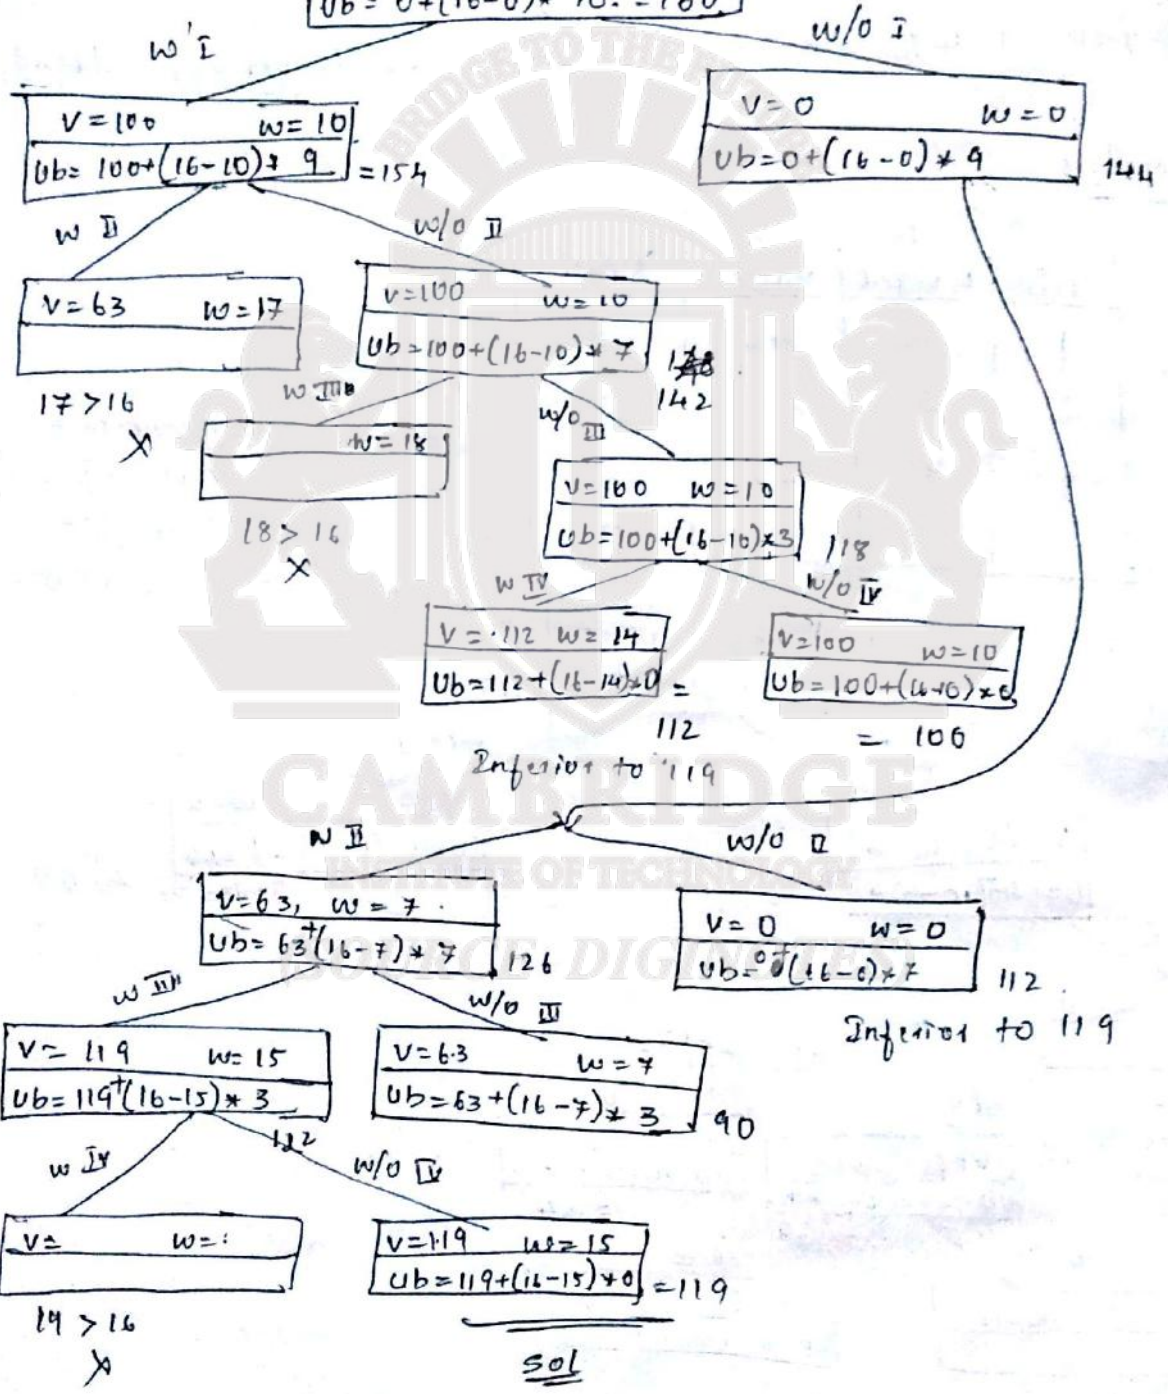 Ub = 0+(16-0)* 10. = 160
W I
W/O I
V=100 W=10
Ub= 100+(16-10)* 9 =154
V=0 W=0
Ub=0+(16-0)*9 144
W II
W/O II
V=63 W=17
17>16
X
V=100 W=10
Ub=100+(16-10)*7
142
W III
W/O III
W=18
18>16
X
V=100 W=10
Ub=100+(16-10)*3 118
W IV
W/O IV
V=112 W=14
Ub=112+(16-14)*0 =
112
Inferior to 119
V=100 W=10
Ub=100+(16-10)*0
= 100
W II
W/O II
V=63, W=7
Ub= 63+(16-7)*7 126
V=0 W=0
Ub=0+(16-0)*7 112
Inferior to 119
W III
W/O III
V= 119 W=15
Ub=119+(16-15)*3
122
V=63 W=7
Ub=63+(16-7)*3 90
W IV
W/O IV
V= W=:
19>16
X
V=119 W=15
Ub=119+(16-15)*0 =119
Sol
BRIDGE TO THE FUTURE
CAMBRIDGE
INSTITUTE OF TECHNOLOGY
(SOURCE DIGINOTES)